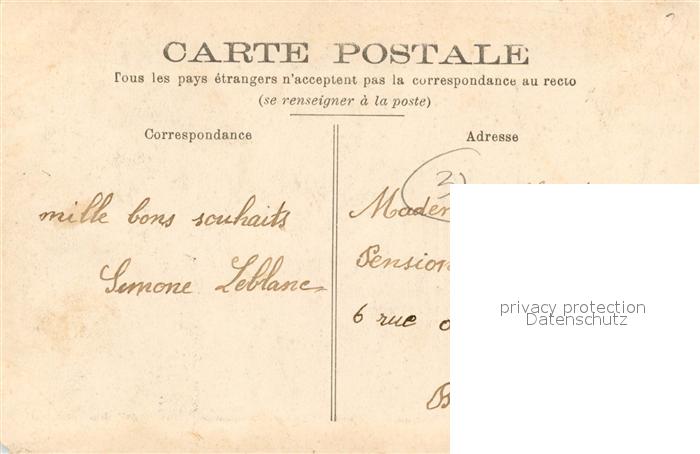 CARTE POSTALE
Tous les pays étrangers n'acceptent pas la correspondance au recto
(se renseigner à la poste)
Correspondance
Adresse
mille bons souhaits
Simone Leblanc
3)
Mader
Pension
6 rue
privacy protection
Datenschutz